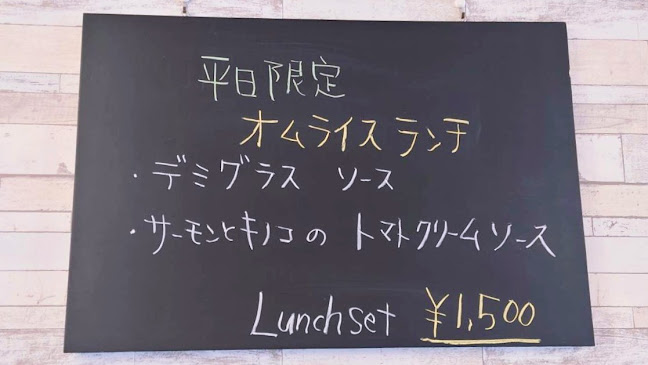 平日限定
オムライスランチ
・デミグラス ソース
・サーモンとキノコの トマトクリームソース
Lunch set ¥1,500